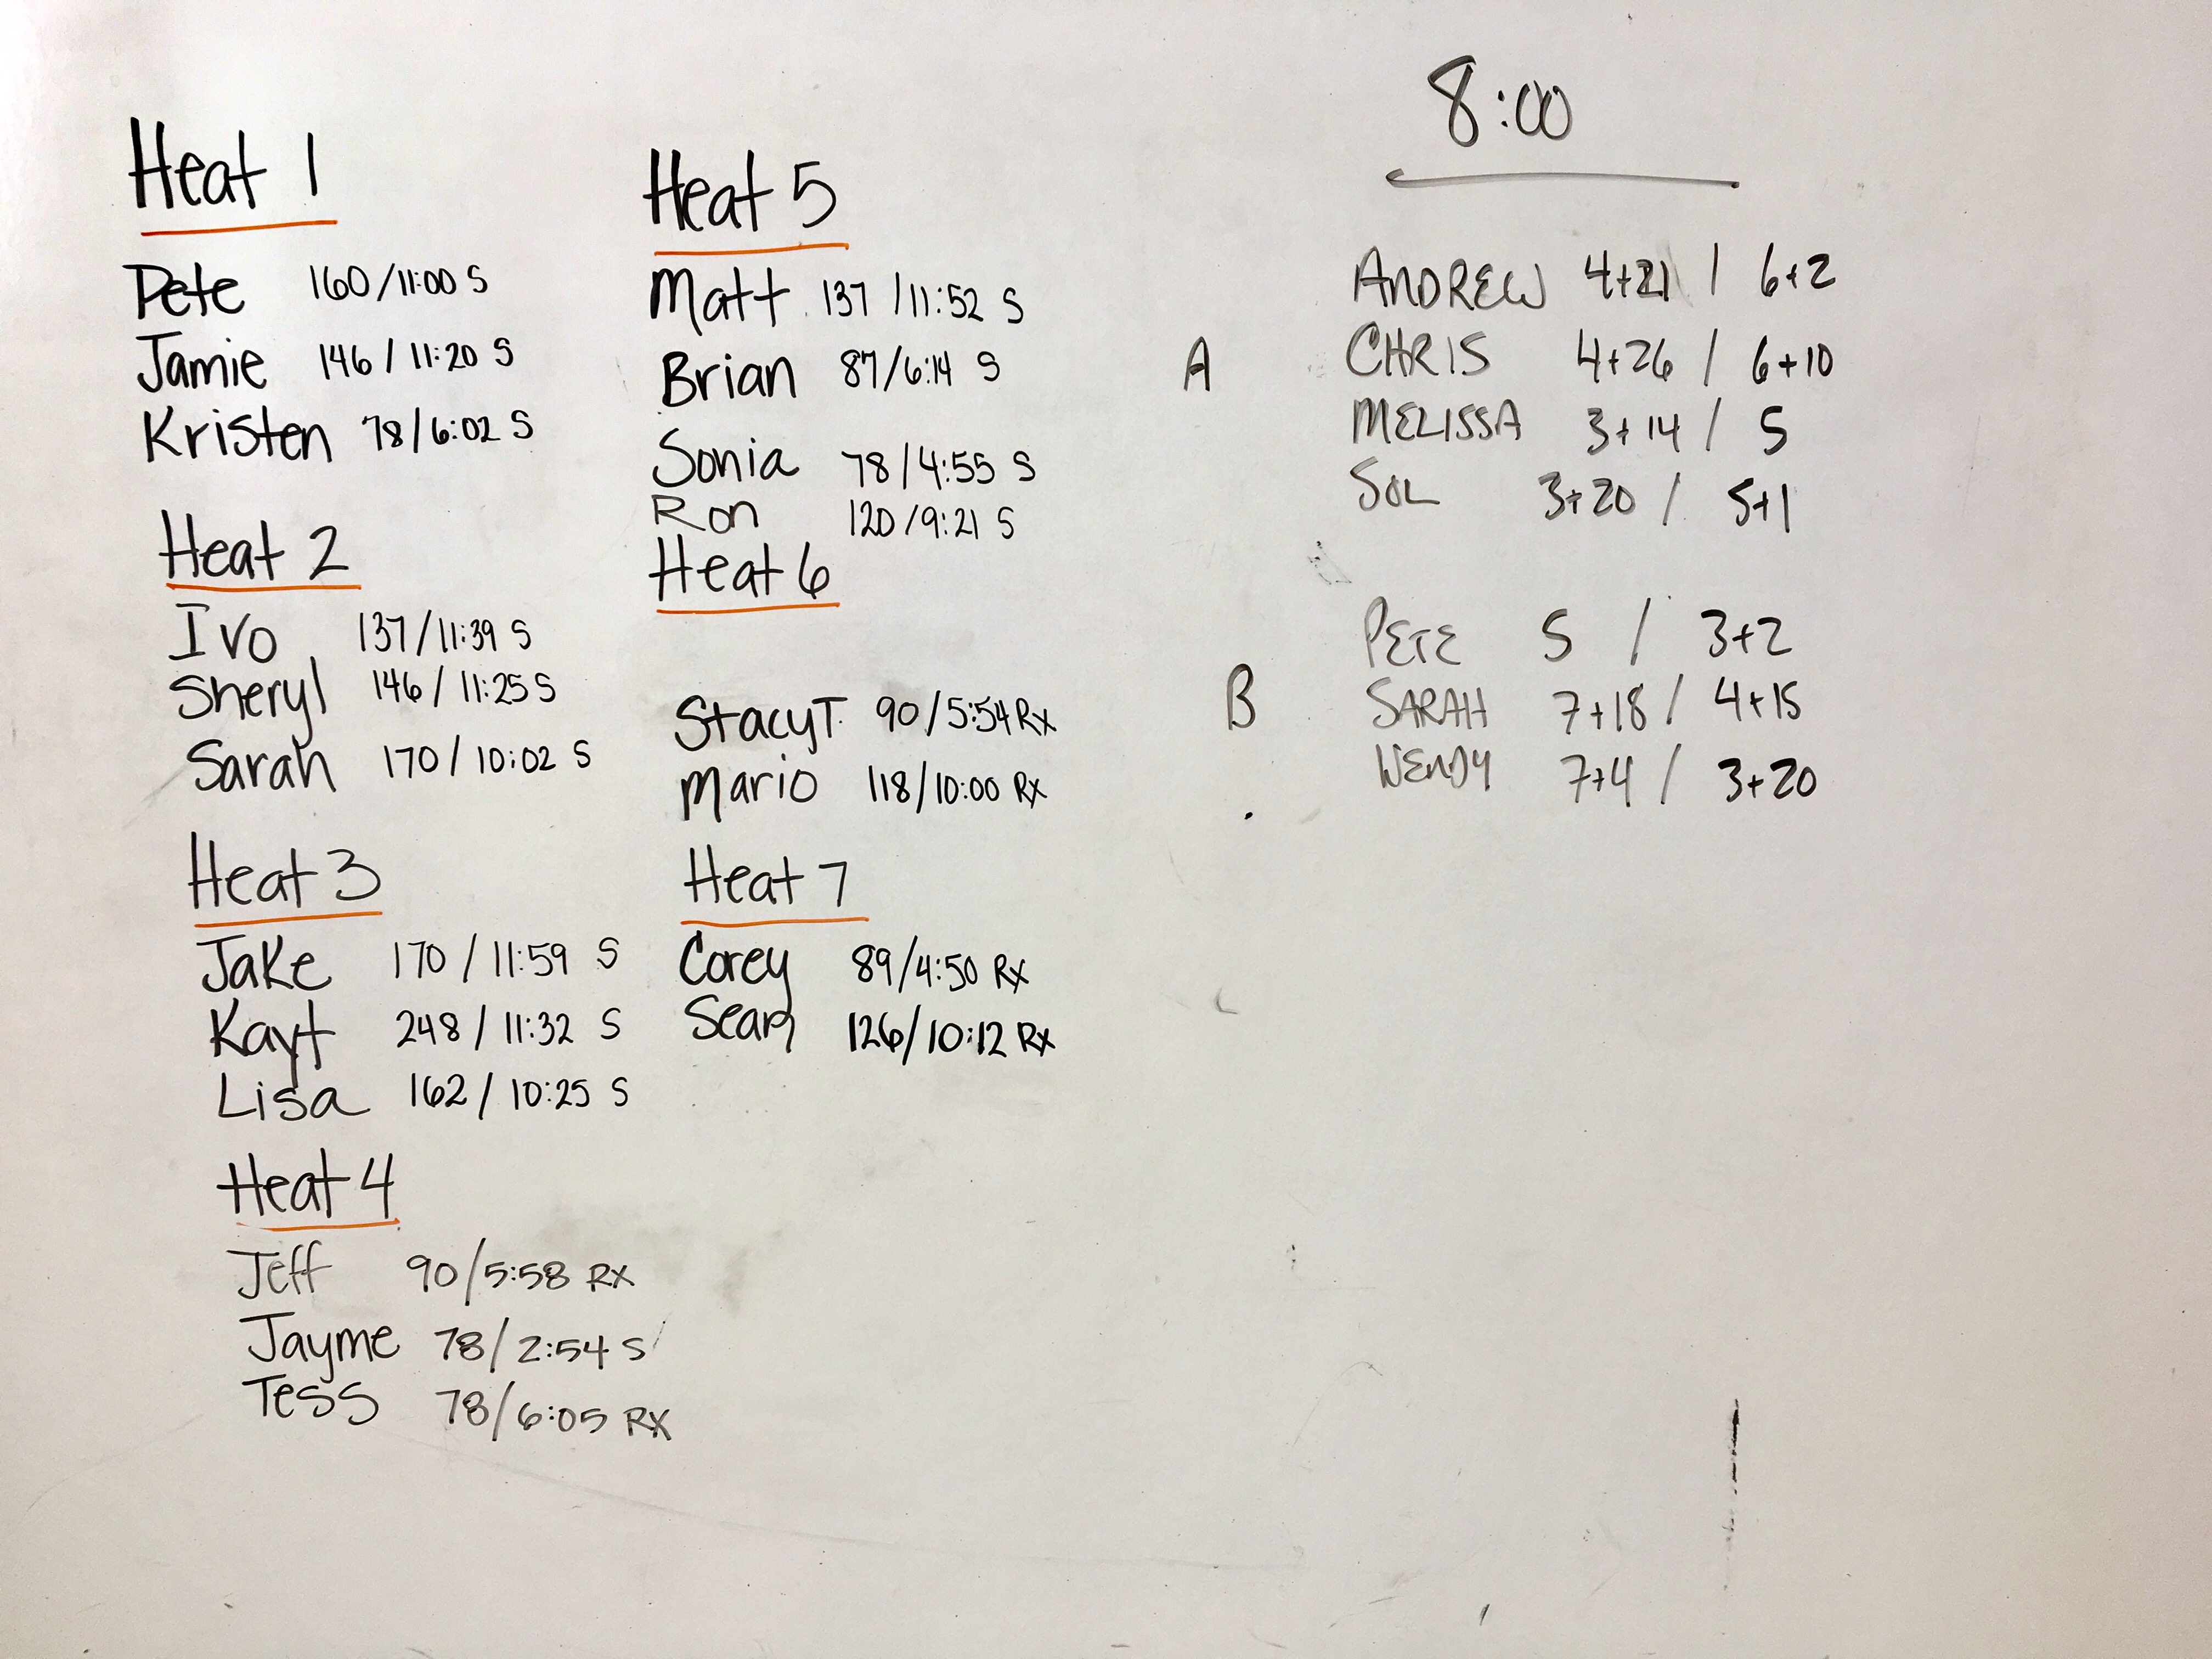 Heat 1
Pete 160/11:00 S
Jamie 146/11:20 S
Kristen 78/6:02 S
Heat 2
Ivo 137/11:39 S
Sheryl 146/11:25 S
Sarah 170/10:02 S
Heat 3
Jake 170/11:59 S
Kayt 248/11:32 S
Lisa 162/10:25 S
Heat 4
Jeff 90/5:58 RX
Jayme 78/2:54 S
Tess 78/6:05 RX
Heat 5
Matt 137/11:52 S
Brian 87/6:14 S
Sonia 78/4:55 S
Ron 120/9:21 S
Heat 6
Stacy T. 90/5:54 Rx
Mario 118/10:00 Rx
Heat 7
Corey 89/4:50 Rx
Sean 126/10:12 Rx
8:00
A
ANDREW 4+21 / 6+2
CHRIS 4+26 / 6+10
MELISSA 3+14 / 5
SOL 3+20 / 5+1
B
PETE 5 / 3+2
SARAH 7+18 / 4+15
WENDY 7+4 / 3+20